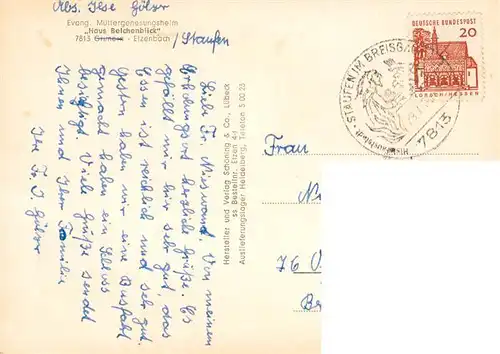 Abs. Ilse Gölzer
Evang. Müttergenesungsheim
„Haus Belchenblick"
7813 Grunern - Etzenbach /Staufen
Liebe Fr. Nieswand. Von meinem
Erholungsort herzliche Grüße. Es
gefällt mir hier sehr gut, das
Essen ist reichlich und sehr gut.
Gestern haben wir eine Busfahrt
gemacht haben ein Schloss
besichtigt. Viele Grüße sendet
Ihnen und Ihrer Familie
Ihre Fr. I. Gölzer
Hersteller und Verlag Schöning & Co., Lübeck
ss Bestellnr. Etzen 4
Auslieferungslager Heidelberg, Telefon 5 00 23
DEUTSCHE BUNDESPOST
20
LORSCH/HESSEN
STAUFEN IM BREISGAU
7813
Frau
76